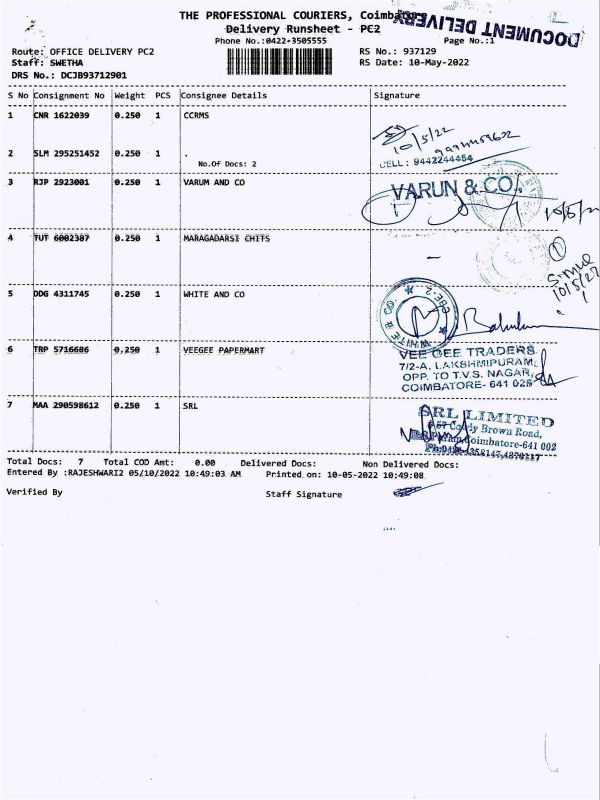 THE PROFESSIONAL COURIERS, Coimbatore
DOCUMENT DELIVERY
Delivery Runsheet - PC2
Phone No.:0422-3505555
Page No.:1
Route: OFFICE DELIVERY PC2
RS No.: 937129
Staff: SWETHA
RS Date: 10-May-2022
DRS No.: DCJB93712901
S No Consignment No Weight PCS Consignee Details Signature
1 CNR 1622039 0.250 1 CCRMS
10/5/22
2 SLM 295251452 0.250 1 .
No.Of Docs: 2
CELL: 9442244464
3 RJP 2923001 0.250 1 VARUM AND CO
VARUN & CO.
10/5/22
4 TUT 6002387 0.250 1 MARAGADARSI CHITS
1
10/5/22
5 DDG 4311745 0.250 1 WHITE AND CO
WHITE & CO. CBE-2
6 TRP 5716686 0.250 1 VEEGEE PAPERMART
VEE GEE TRADERS
7/2-A, LAKSHMIPURAM,
OPP. TO T.V.S. NAGAR,
COIMBATORE- 641 025
7 MAA 290598612 0.250 1 SRL
SRL LIMITED
Brown Road,
Coimbatore-641 002
Total Docs: 7 Total COD Amt: 0.00 Delivered Docs: Non Delivered Docs:
Entered By :RAJESHWARI2 05/10/2022 10:49:03 AM Printed on: 10-05-2022 10:49:08
Verified By Staff Signature